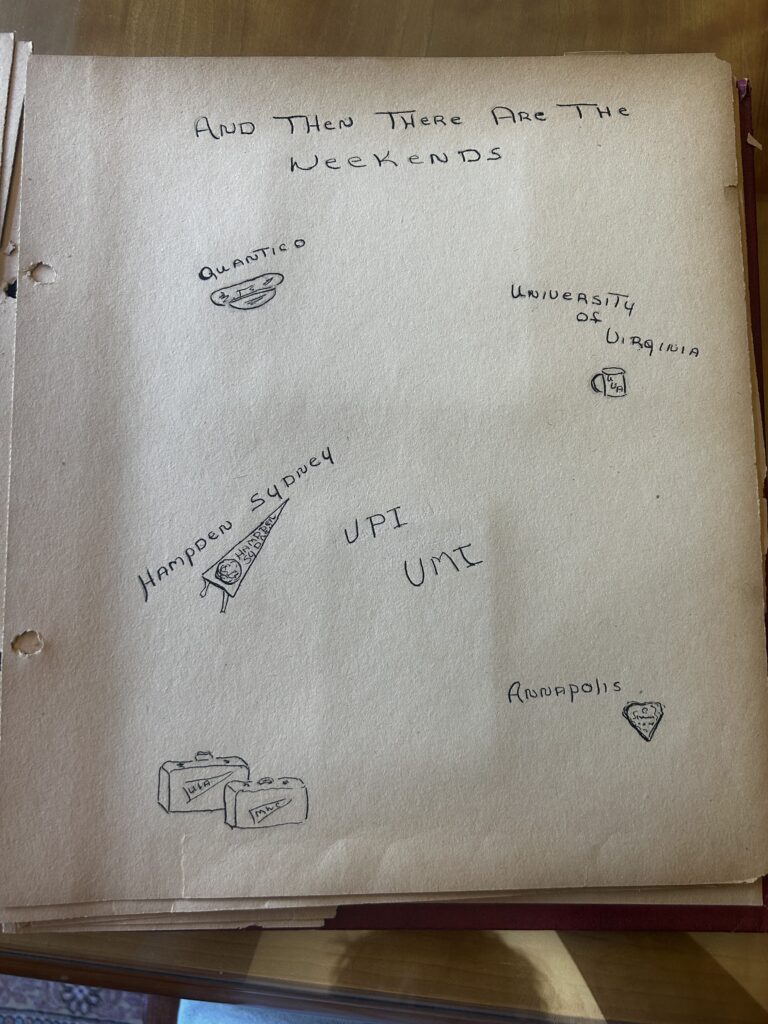 AND THEN THERE ARE THE
WEEKENDS
QUANTICO
UNIVERSITY
OF
VIRGINIA
U
VA
HAMPDEN SYDNEY
HAMPDEN
SYDNEY
VPI
VMI
ANNAPOLIS
UVA
MWC